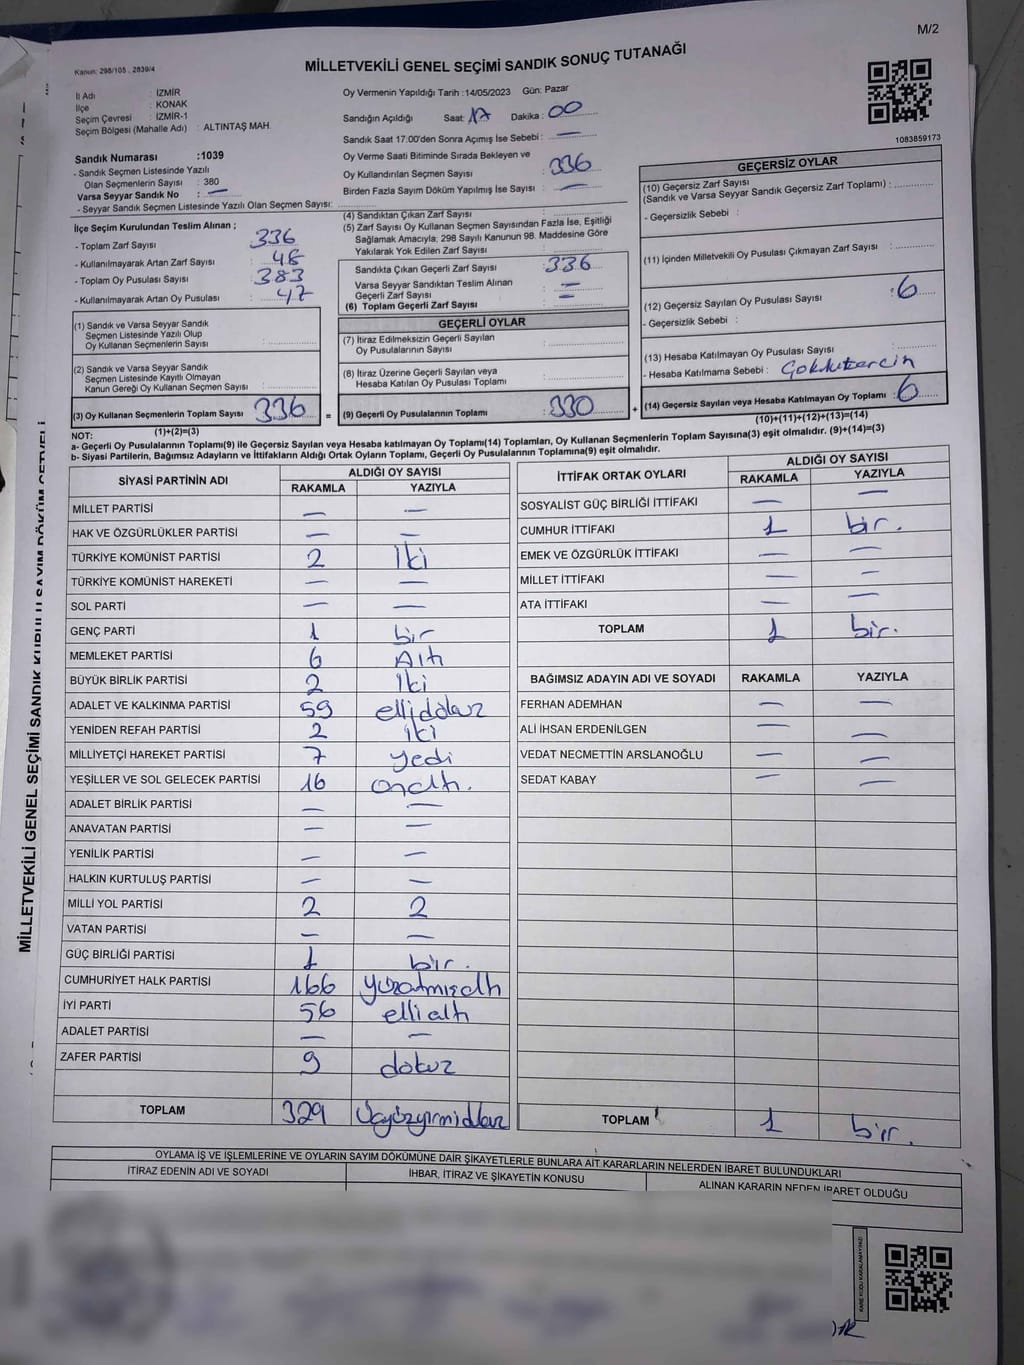 M/2
Kanun: 298/105 , 2839/4
MİLLETVEKİLİ GENEL SEÇİMİ SANDIK SONUÇ TUTANAĞI
İl Adı : İZMİR
İlçe : KONAK
Seçim Çevresi : İZMİR-1
Seçim Bölgesi (Mahalle Adı) : ALTINTAŞ MAH.
Oy Vermenin Yapıldığı Tarih :14/05/2023 Gün: Pazar
Sandığın Açıldığı Saat: 17 Dakika : 00
Sandık Saat 17:00'den Sonra Açımış İse Sebebi : —
Oy Verme Saati Bitiminde Sırada Bekleyen ve
Oy Kullandırılan Seçmen Sayısı : 336
Birden Fazla Sayım Döküm Yapılmış İse Sayısı : —
1083859173
Sandık Numarası :1039
- Sandık Seçmen Listesinde Yazılı
Olan Seçmenlerin Sayısı : 380
Varsa Seyyar Sandık No : —
- Seyyar Sandık Seçmen Listesinde Yazılı Olan Seçmen Sayısı:
İlçe Seçim Kurulundan Teslim Alınan ;
- Toplam Zarf Sayısı : 336
- Kullanılmayarak Artan Zarf Sayısı : 48
- Toplam Oy Pusulası Sayısı : 383
- Kullanılmayarak Artan Oy Pusulası : 47
(1) Sandık ve Varsa Seyyar Sandık
Seçmen Listesinde Yazılı Olup
Oy Kullanan Seçmenlerin Sayısı :
(2) Sandık ve Varsa Seyyar Sandık
Seçmen Listesinde Kayıtlı Olmayan
Kanun Gereği Oy Kullanan Seçmen Sayısı :
(3) Oy Kullanan Seçmenlerin Toplam Sayısı 336 =
(1)+(2)=(3)
(4) Sandıktan Çıkan Zarf Sayısı :
(5) Zarf Sayısı Oy Kullanan Seçmen Sayısından Fazla İse, Eşitliği
Sağlamak Amacıyla; 298 Sayılı Kanunun 98. Maddesine Göre
Yakılarak Yok Edilen Zarf Sayısı :
Sandıkta Çıkan Geçerli Zarf Sayısı : 336
Varsa Seyyar Sandıktan Teslim Alınan
Geçerli Zarf Sayısı : —
(6) Toplam Geçerli Zarf Sayısı : —
GEÇERLİ OYLAR
(7) İtiraz Edilmeksizin Geçerli Sayılan
Oy Pusulalarının Sayısı :
(8) İtiraz Üzerine Geçerli Sayılan veya
Hesaba Katılan Oy Pusulası Toplamı :
(9) Geçerli Oy Pusulalarının Toplamı : 330 +
GEÇERSİZ OYLAR
(10) Geçersiz Zarf Sayısı
(Sandık ve Varsa Seyyar Sandık Geçersiz Zarf Toplamı) :
- Geçersizlik Sebebi :
(11) İçinden Milletvekili Oy Pusulası Çıkmayan Zarf Sayısı :
(12) Geçersiz Sayılan Oy Pusulası Sayısı : 6
- Geçersizlik Sebebi :
(13) Hesaba Katılmayan Oy Pusulası Sayısı :
- Hesaba Katılmama Sebebi :
(14) Geçersiz Sayılan veya Hesaba Katılmayan Oy Toplamı : 6
(10)+(11)+(12)+(13)=(14)
NOT:
a- Geçerli Oy Pusulalarının Toplamı(9) ile Geçersiz Sayılan veya Hesaba katılmayan Oy Toplamı(14) Toplamları, Oy Kullanan Seçmenlerin Toplam Sayısına(3) eşit olmalıdır. (9)+(14)=(3)
b- Siyasi Partilerin, Bağımsız Adayların ve İttifakların Aldığı Ortak Oyların Toplamı, Geçerli Oy Pusulalarının Toplamına(9) eşit olmalıdır.
SİYASİ PARTİNİN ADI ALDIĞI OY SAYISI
RAKAMLA YAZIYLA
MİLLET PARTİSİ — —
HAK VE ÖZGÜRLÜKLER PARTİSİ — —
TÜRKİYE KOMÜNİST PARTİSİ 2 iki
TÜRKİYE KOMÜNİST HAREKETİ — —
SOL PARTİ — —
GENÇ PARTİ 1 bir
MEMLEKET PARTİSİ 6 Altı
BÜYÜK BİRLİK PARTİSİ 2 iki
ADALET VE KALKINMA PARTİSİ 59 ellidokuz
YENİDEN REFAH PARTİSİ 2 iki
MİLLİYETÇİ HAREKET PARTİSİ 7 yedi
YEŞİLLER VE SOL GELECEK PARTİSİ 16 onaltı.
ADALET BİRLİK PARTİSİ — —
ANAVATAN PARTİSİ — —
YENİLİK PARTİSİ — —
HALKIN KURTULUŞ PARTİSİ — —
MİLLİ YOL PARTİSİ 2 2
VATAN PARTİSİ — —
GÜÇ BİRLİĞİ PARTİSİ 1 bir.
CUMHURİYET HALK PARTİSİ 166 yüzatmışaltı
İYİ PARTİ 56 ellialtı
ADALET PARTİSİ — —
ZAFER PARTİSİ 9 dokuz
TOPLAM 329 Üçyüzyirmidokuz
İTTİFAK ORTAK OYLARI ALDIĞI OY SAYISI
RAKAMLA YAZIYLA
SOSYALİST GÜÇ BİRLİĞİ İTTİFAKI — —
CUMHUR İTTİFAKI 1 bir.
EMEK VE ÖZGÜRLÜK İTTİFAKI — —
MİLLET İTTİFAKI — —
ATA İTTİFAKI — —
TOPLAM 1 bir.
BAĞIMSIZ ADAYIN ADI VE SOYADI RAKAMLA YAZIYLA
FERHAN ADEMHAN — —
ALİ İHSAN ERDENİLGEN — —
VEDAT NECMETTİN ARSLANOĞLU — —
SEDAT KABAY — —
TOPLAM 1 bir.
OYLAMA İŞ VE İŞLEMLERİNE VE OYLARIN SAYIM DÖKÜMÜNE DAİR ŞİKAYETLERLE BUNLARA AİT KARARLARIN NELERDEN İBARET BULUNDUKLARI
İTİRAZ EDENİN ADI VE SOYADI İHBAR, İTİRAZ VE ŞİKAYETİN KONUSU ALINAN KARARIN NEDEN İBARET OLDUĞU
KARE KODU KARALAMAYINIZ!
MİLLETVEKİLİ GENEL SEÇİMİ SANDIK KURULU SAYIM DÖKÜM CETVELİ